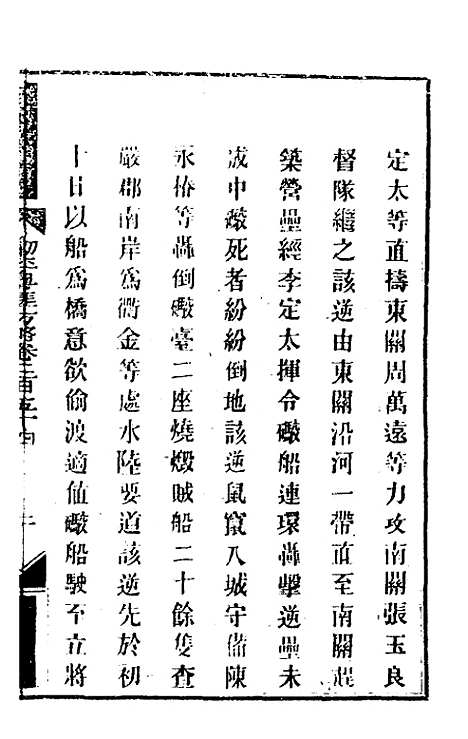 定太等直擣東關周萬遠等力攻南關張玉良
督隊繼之該逆由東關沿河一帶直至南關趕
築營壘經李定太揮令礮船連環轟擊逆壘未
成中礮死者紛紛倒地該逆鼠竄入城守備陳
永椿等轟倒礮臺二座燒燬賊船二十餘隻查
嚴郡南岸爲衢金等處水陸要道該逆先於初
十日以船爲橋意欲偷渡適値礮船駛至立將
方略卷二百五十四